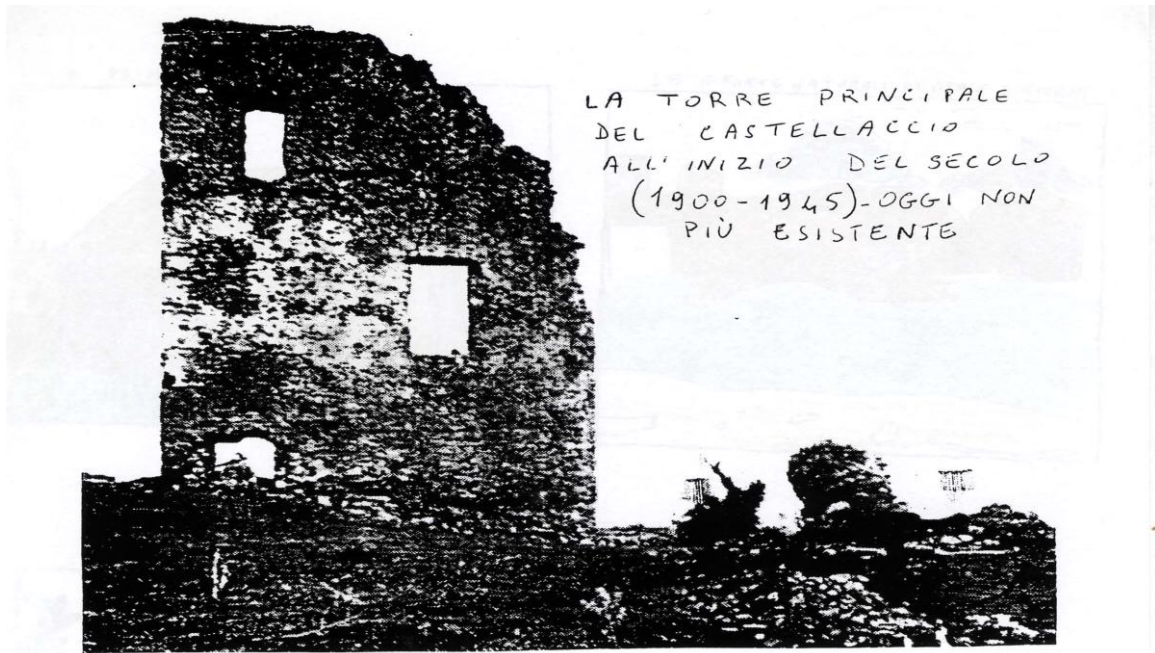 LA TORRE PRINCIPALE
DEL CASTELLACCIO
ALL'INIZIO DEL SECOLO
(1900-1945)-OGGI NON
PIÙ ESISTENTE